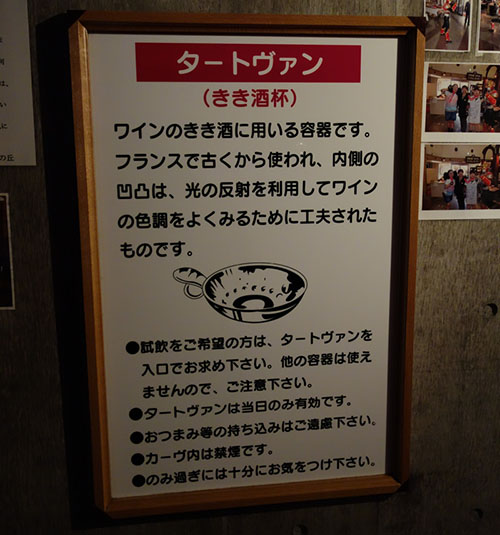 タートヴァン
（きき酒杯）
ワインのきき酒に用いる容器です。
フランスで古くから使われ、内側の
凹凸は、光の反射を利用してワイン
の色調をよくみるために工夫された
ものです。
●試飲をご希望の方は、タートヴァンを
入口でお求め下さい。他の容器は使え
ませんので、ご注意下さい。
●タートヴァンは当日のみ有効です。
●おつまみ等の持ち込みはご遠慮下さい。
●カーヴ内は禁煙です。
●のみ過ぎには十分にお気をつけ下さい。
の丘